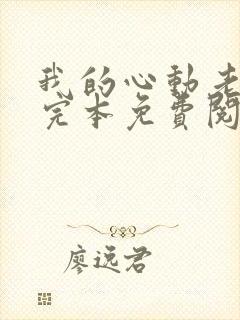 我的心動老
完本免費閱
廖远君